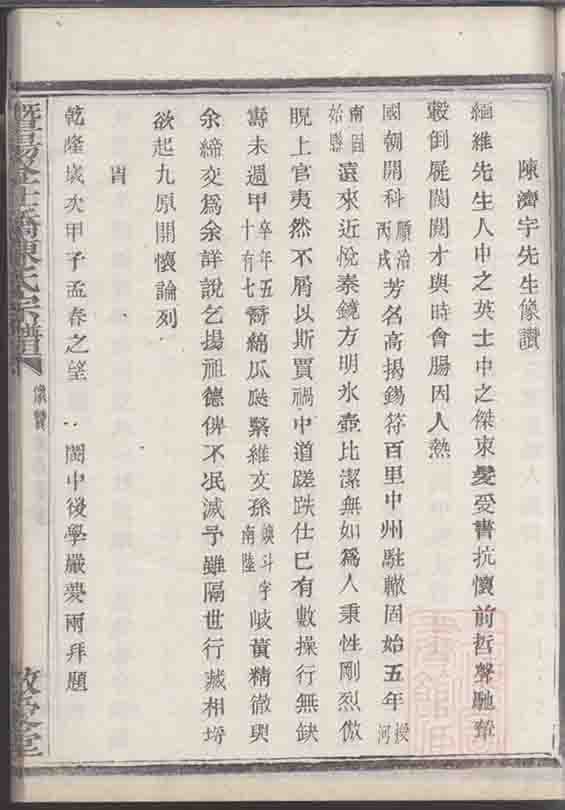 陳濟宇先生像讚
緬維先生人中之英士中之傑束髮受書抗懷前哲聲馳輦
轂倒屣閥閱才與時會腸因人熱
國朝開科順治丙戌芳名高揭錫符百里中州駐轍固始五年授河
南固始縣遠來近悅秦鏡方明氷壺比潔無如爲人秉性剛烈傲
睨上官夷然不屑以斯賈禍中道蹉跌仕已有數操行無缺
壽未週甲卒年五十有七裔綿瓜瓞繫維文孫煥斗字南陸岐黃精徹與
余締交爲余詳說乞揚祖德俾不冺滅予雖隔世行藏相埒
欲起九原開懷論列
旹
乾隆歲次甲子孟春之望 閩中後學嚴夢雨拜題
陳氏宗譜
像讚